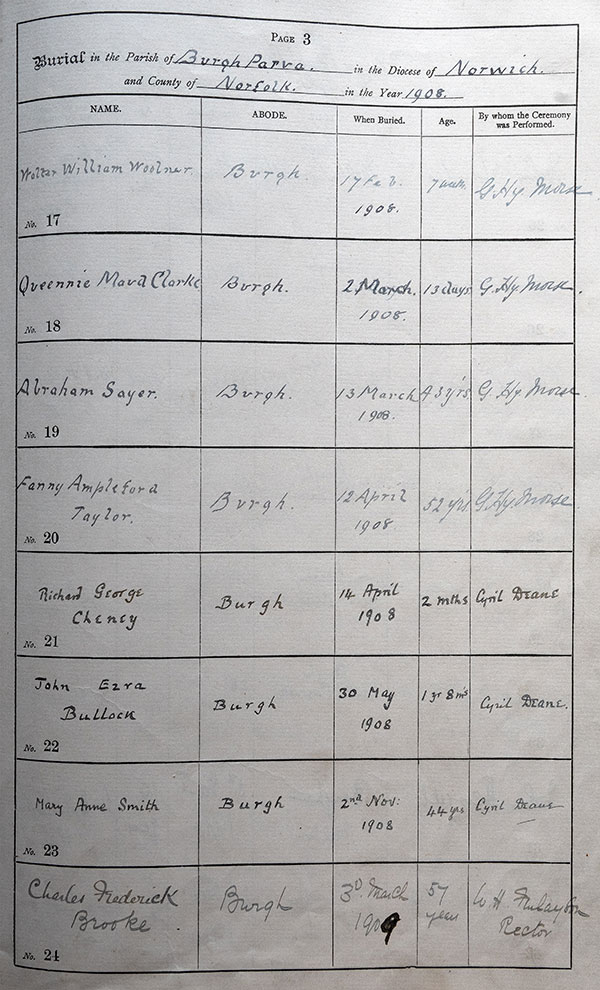 PAGE 3
Burial in the Parish of Burgh Parva. in the Diocese of Norwich.
and County of Norfolk. in the Year 1908.
NAME. ABODE. When Buried. Age. By whom the Ceremony was Performed.
Walter William Woolner. Burgh. 17 Feb. 7 G. Hy Morse
1908.
No. 17
Queennie Maud Clarke Burgh. 2 March. 13 days. G. Hy Morse.
1908.
No. 18
Abraham Sayer. Burgh. 13 March 43 yrs. G. Hy Morse
1908.
No. 19
Fanny Ampleford Burgh. 12 April 52 yrs G. Hy. Morse
Taylor. 1908.
No. 20
Richard George Burgh 14 April 2 mths Cyril Deane
Cheney 1908
No. 21
John Ezra Burgh 30 May 1 yr 8 ms Cyril Deane.
Bullock 1908
No. 22
Mary Anne Smith Burgh 2nd Nov: 44 yrs Cyril Deane
1908
No. 23
Charles Frederick Burgh 3d. March 57 W H
Brooke 1909 years Rector
No. 24